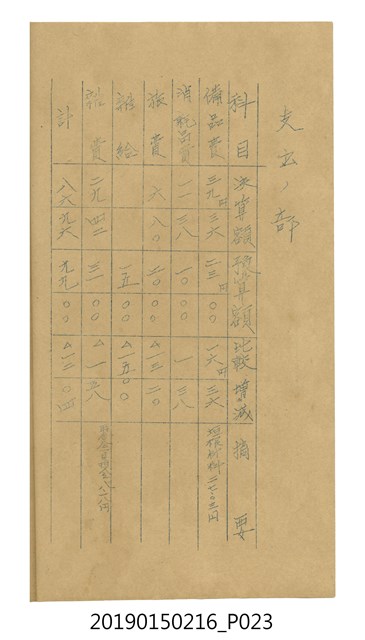 支出ノ部
科目 決算額 予算額 比較増減 摘要
備品費 三九円三六 二三円〇〇 一六円三六
消耗品費 一一三八 一〇〇〇 一三八
旅費 六八〇 二〇〇〇 △一三二〇
雑給 一五〇〇 △一五〇〇
雑費 二九四二 三一〇〇 △一五八
計 八六九六 九九〇〇 △一二〇四
20190150216_P023